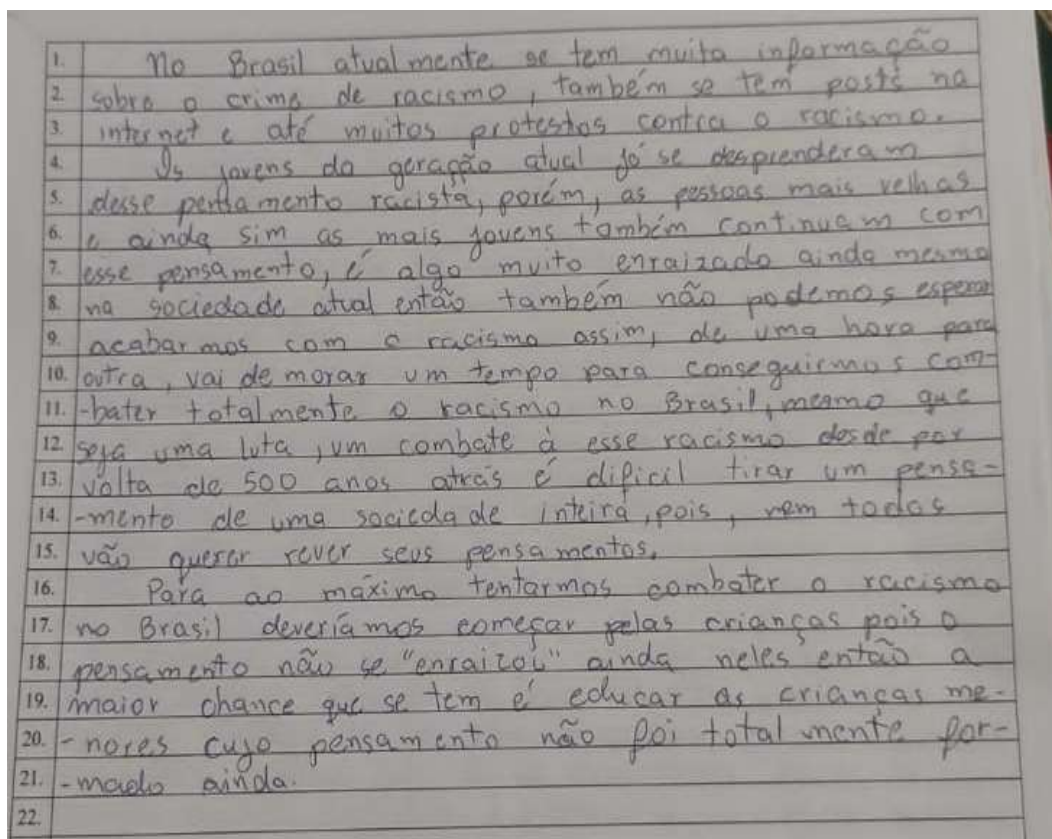 1. No Brasil atualmente se tem muita informação
2. sobre o crime de racismo, também se tem posts na
3. internet e até muitos protestos contra o racismo.
4. Os jovens da geração atual já se desprenderam
5. desse pensamento racista, porém, as pessoas mais velhas
6. e ainda sim as mais jovens também continuam com
7. esse pensamento, é algo muito enraizado ainda mesmo
8. na sociedade atual então também não podemos esperar
9. acabarmos com o racismo assim, de uma hora para
10. outra, vai demorar um tempo para conseguirmos com-
11. -bater totalmente o racismo no Brasil, mesmo que
12. seja uma luta, um combate à esse racismo desde por
13. volta de 500 anos atrás é dificil tirar um pensa-
14. -mento de uma sociedade inteira, pois, nem todos
15. vão querer rever seus pensamentos.
16. Para ao máximo tentarmos combater o racismo
17. no Brasil deveríamos começar pelas crianças pois o
18. pensamento não se "enraizou" ainda neles então a
19. maior chance que se tem é educar as crianças me-
20. -nores cujo pensamento não foi totalmente for-
21. -mado ainda.
22.